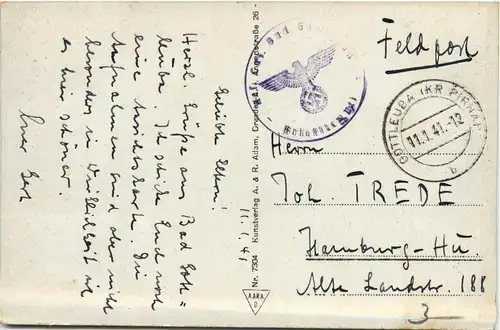 11.1.41
Liebste Eltern!
Herzl. Grüße aus Bad Gott=
leuba. Ich schicke Euch noch
eine Ansichtskarte. Die
Aufnahmen sind aber nicht
besonders, in Wirklichkeit ist
es hier schöner.
Euer
Nr. 7304 Kunstverlag A. & R. Adam, Dresden
26 -
A.&R.A.
D
Feldpost
GOTTLEUBA (KR PIRNA)
11.1.41.-12
b
Herrn
Joh. TREDE
Hamburg-Hu.
Alte Landstr. 188
3